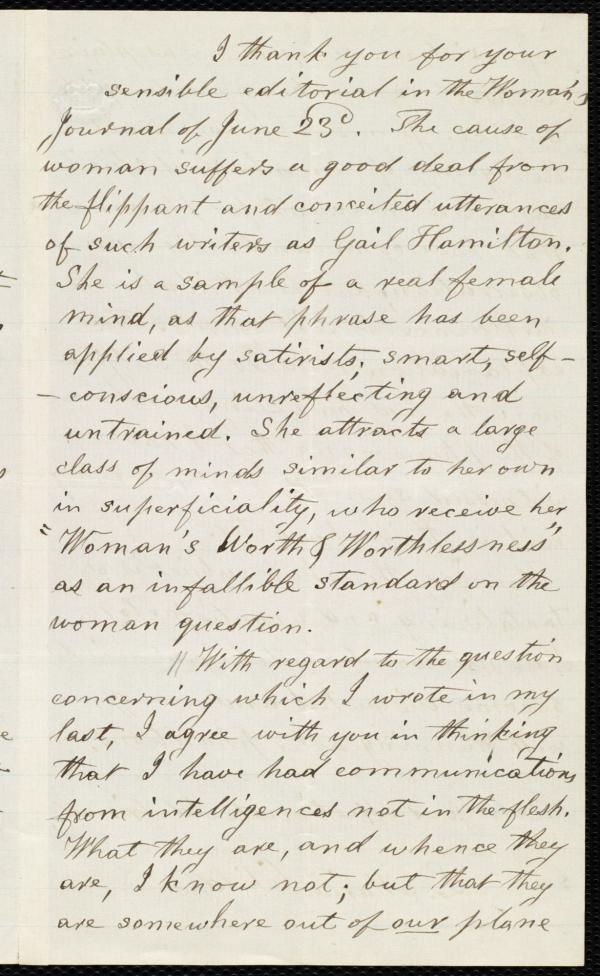 I thank you for your
sensible editorial in the Woman's
Journal of June 23d. The cause of
woman suffers a good deal from
the flippant and conceited utterances
of such writers as Gail Hamilton.
She is a sample of a real female
mind, as that phrase has been
applied by satirists; smart, self-
-conscious, unreflecting and
untrained. She attracts a large
class of minds similar to her own
in superficiality, who receive her
"Woman's Worth & Worthlessness"
as an infallible standard on the
woman question.
|| With regard to the question
concerning which I wrote in my
last, I agree with you in thinking
that I have had communications
from intelligences not in the flesh.
What they are, and whence they
are, I know not; but that they
are somewhere out of our plane